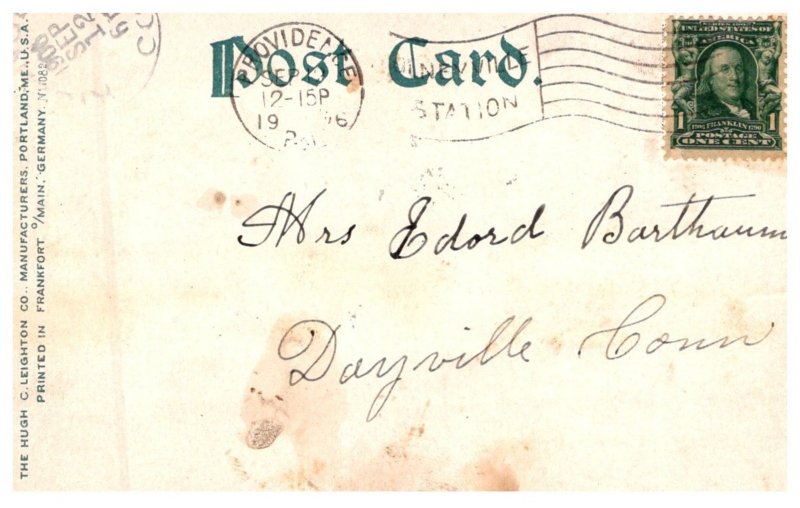 Post Card.
PROVIDENCE
SEP
12-15P
19 06
R.I.
OLNEYVILLE
STATION
UNITED STATES OF
AMERICA
1706 FRANKLIN 1790
1 1
POSTAGE
ONE CENT
Mrs Edord Barthaum
Dayville Conn
THE HUGH C. LEIGHTON CO., MANUFACTURERS, PORTLAND, ME., U.S.A.
PRINTED IN FRANKFORT o/MAIN, GERMANY.
SEP